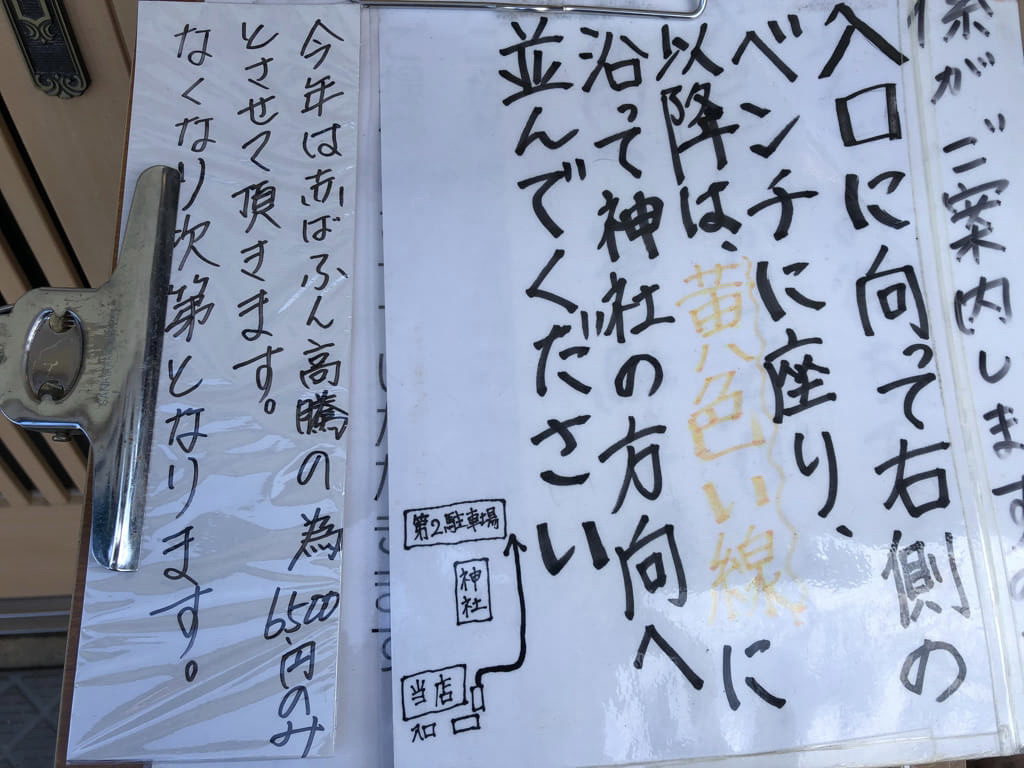 係がご案内します
入口に向って右側の
ベンチに座り、
以降は、黄色い線に
沿って神社の方向へ
並んでください
第2駐車場
神社
当店
入口
今年は赤ばふん高騰の為6,500円のみ
とさせて頂きます。
なくなり次第となります。